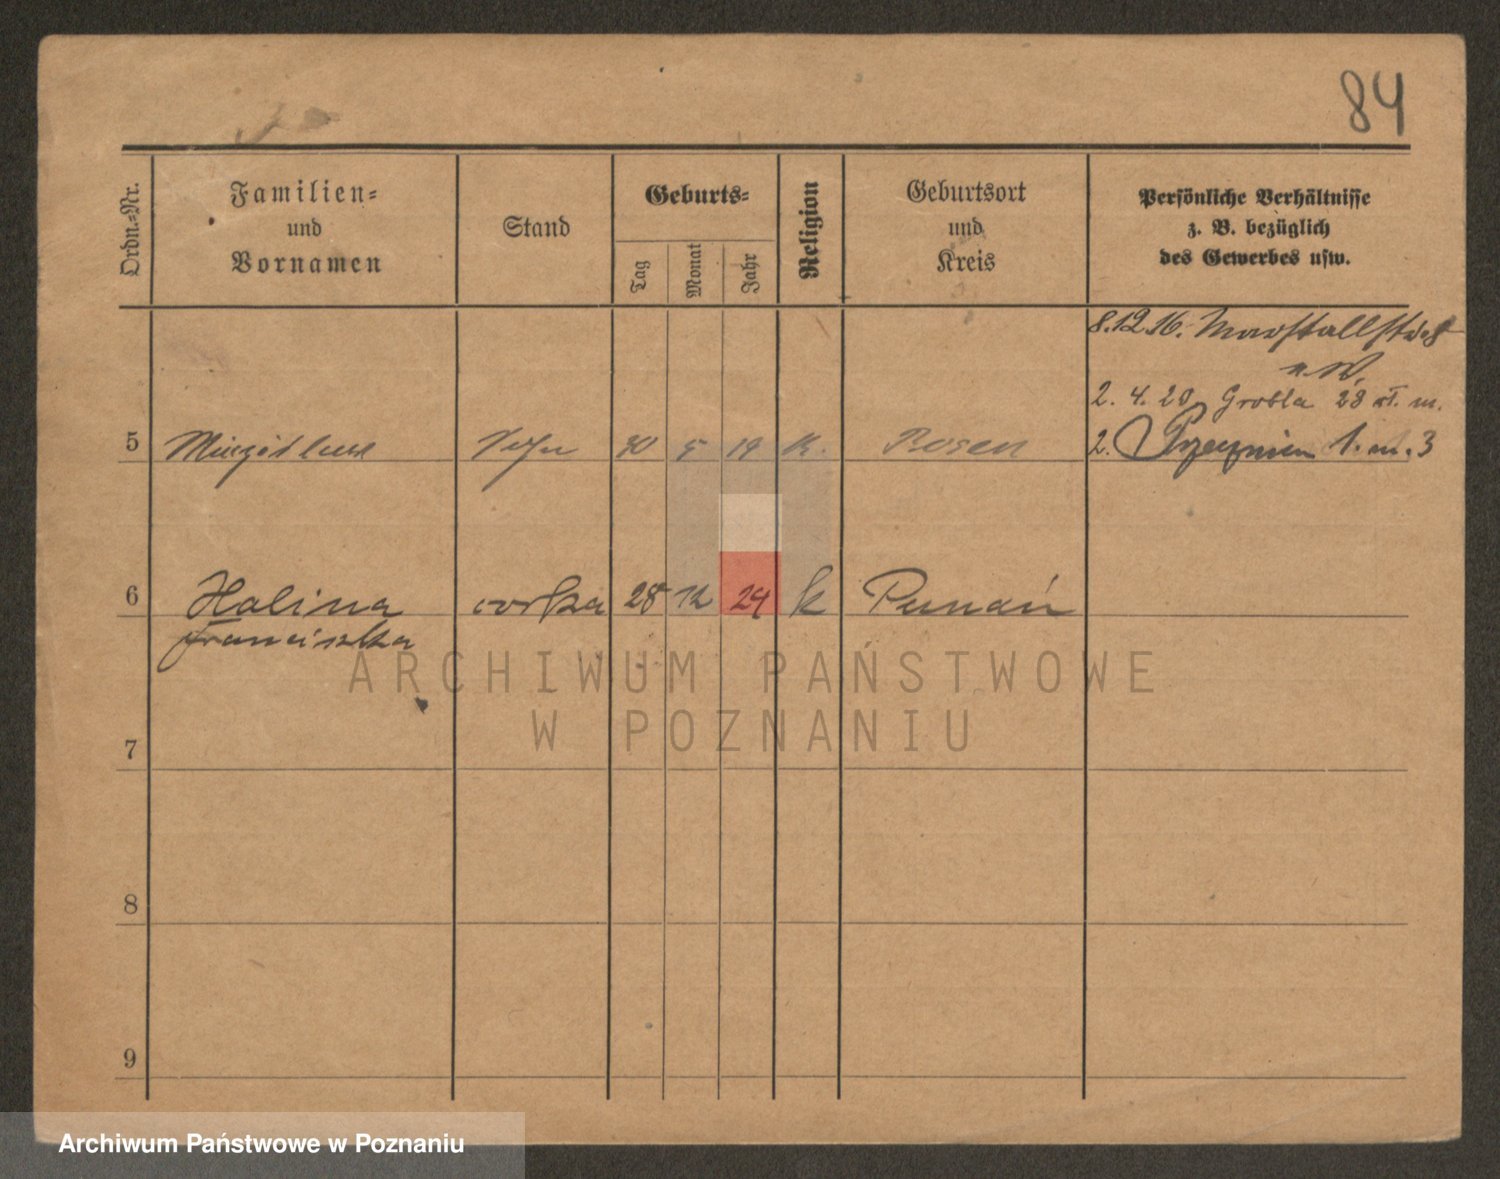 84
Ordn.-Nr.
Familien-
und
Vornamen
Stand
Geburts-
Tag
Monat
Jahr
Religion
Geburtsort
und
Kreis
Persönliche Verhältnisse
z. B. bezüglich
des Gewerbes usw.
8.12.16.
2. 4. 20 Grobla 28 II. m.
5 19 k. Posen 2. 1. m. 3
6 Halina corka 28 12 24 k Poznań
Franciszka
7
8
9
ARCHIWUM PAŃSTWOWE
W POZNANIU
Archiwum Państwowe w Poznaniu